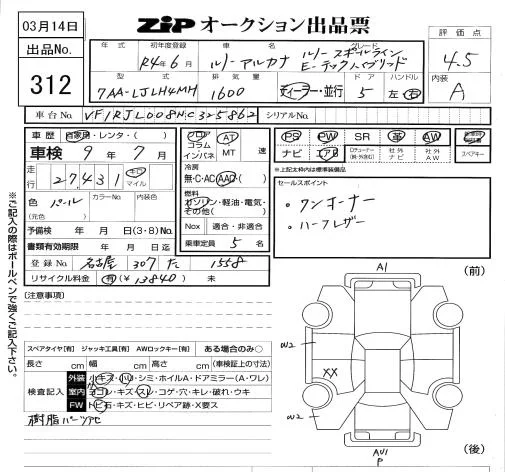 03月14日
ZIP オークション出品票
出品No.
312
評価点
4.5
内装
A
年式 初年度登録 車名 グレード
R4年6月 ルノーアルカナ ルノースポールライン E-テックハイブリッド
型式 排気量 ドア ハンドル
7AA-LJLH4MH 1600 ディーラー・並行 5 左・右
車台No. VF1RJL008NC325862 シリアルNo.
車歴 自家用・レンタ・( )
車検 9年7月
走行 27,431 キロ マイル
色 パール カラーNo. 内装色
(元色)
予備検 年 月 日(3・8)No.
書類有効期限 年 月 日迄
登録No. 名古屋 307 た 1558
リサイクル料金 有(¥13840) 未
フロア コラム インパネ AT MT 速
冷房
無・C・AC・AAC・( )
燃料
ガソリン・軽油・電気・その他( )
Nox 適合・非適合
乗車定員 5 名
PS PW SR 革 AW
ナビ エアB 社外ナビ 社外AW スペアキー
※上記太枠内は標準装備品
セールスポイント
・ワンオーナー
・ハーフレザー
※ご記入の際はボールペンで強くご記入下さい。
(注意事項)
スペアタイヤ[有] ジャッキ工具[有] AWロックキー[有] ある場合のみ○
長さ cm 幅 cm 高さ cm (車検証上の寸法)
検査記入
外装 小キズ・小凹・シミ・ホイルA・ドアミラー(A・ワレ)
室内 ヨゴレ・キズ・スレ・コゲ・穴・キレ・破れ・ウキ
FW トビ石・キズ・ヒビ・リペア跡・X要ス
樹脂パーツAC
(前)
A1
W2
XX
W2
AU1
P
(後)